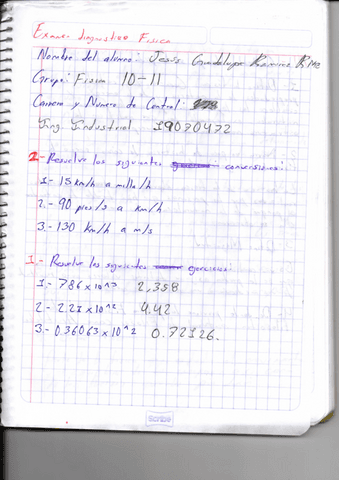 Examen diagnostico Fisica
Nombre del alumno: Jesús Guadalupe Ramirez
Grupo: Fisica 10-11
Carrera y Numero de Control:
Ing. Industrial 19070472
2.- Resuelve los siguientes conversiones:
1.- 15 km/h a milla/h
2.- 90 pies/s a km/h
3.- 130 km/h a m/s
1.- Resuelve los siguientes ejercicios:
1.- 786 x10^3 2,358
2.- 2.21 x10^2 4.42
3.- 0.36063 x10^2 0.72126.
Scribe